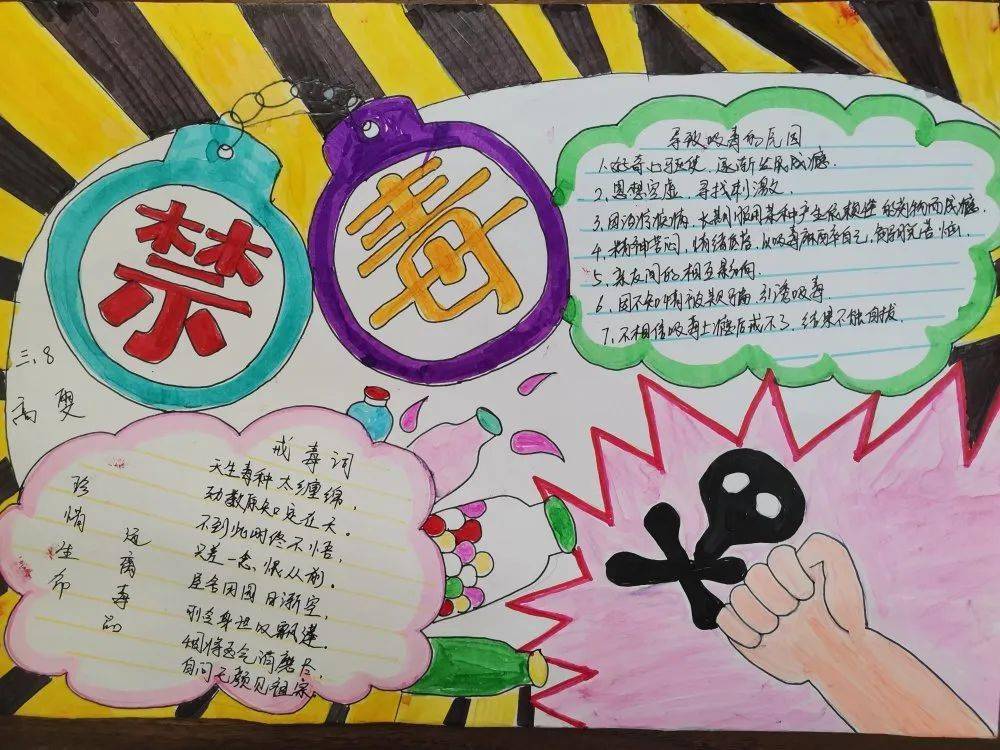 禁 毒
三、8
高
导致吸毒的原因
1、好奇心驱使,逐渐发展成瘾.
2、思想空虚,寻找刺激.
3、因治疗疾病,长期服用某种产生依赖性的药物而成瘾.
4、精神苦闷,情绪低落,以吸毒麻醉自己,
5、亲友间的相互影响.
6、因不知情被欺骗、引诱吸毒.
7、不相信吸毒上瘾后戒不了,结果不能自拔.
戒毒词
天生毒种太缠绵,
劫数原知定在天。
不到此时终不悟,
又差一念,恨从前。
田园日渐空,
身世叹飘蓬。
消磨尽,
自问无颜见祖宗。
珍惜生命
远离毒品